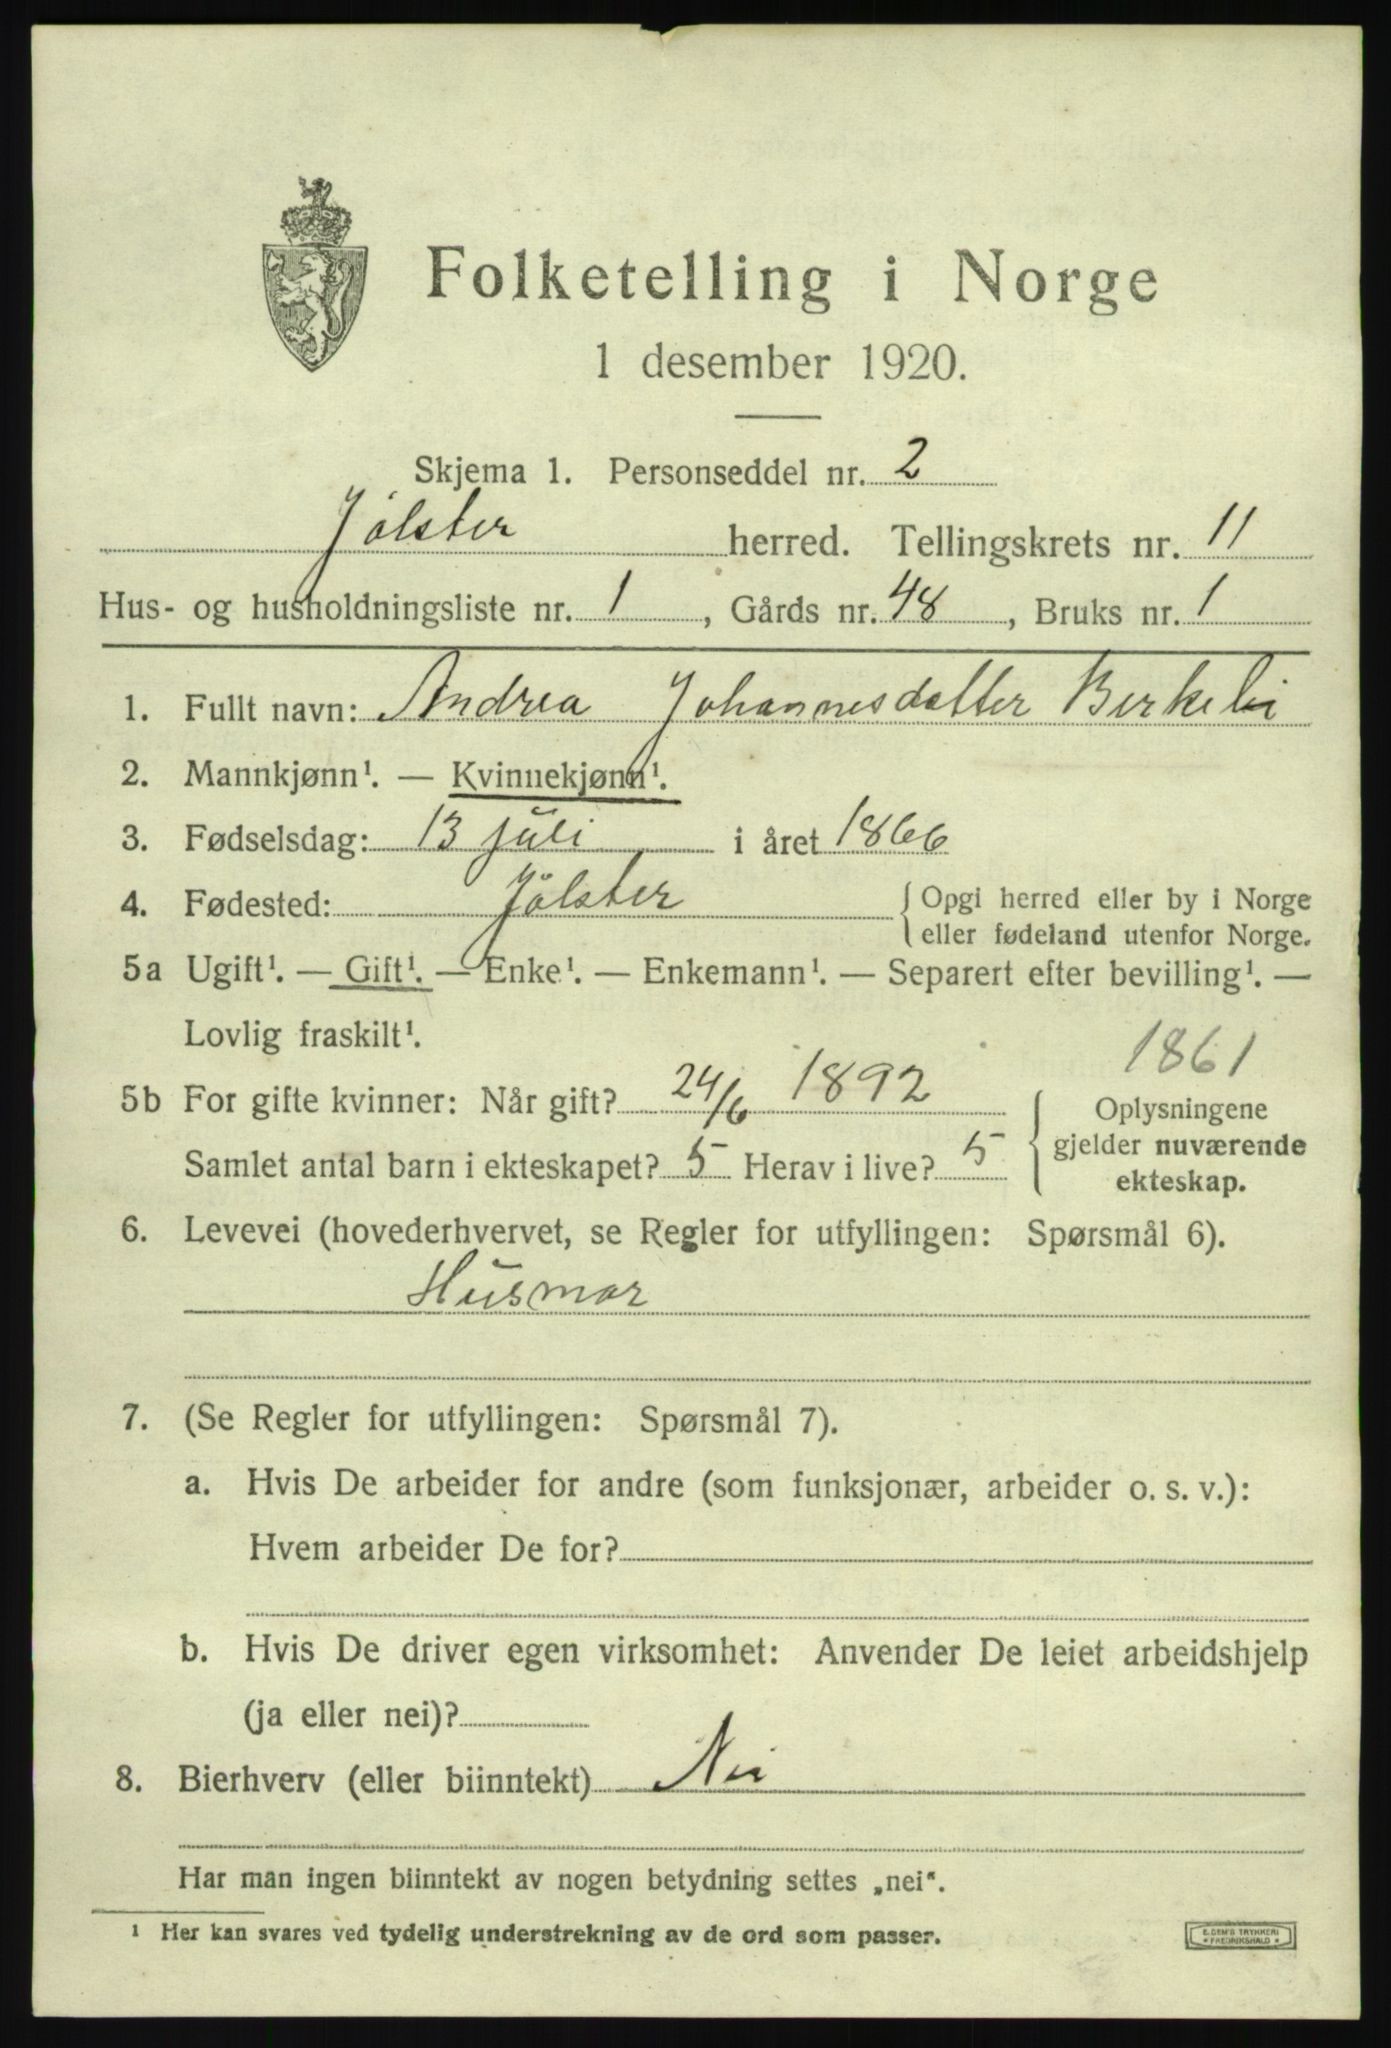 Folketelling i Norge
1 desember 1920.
Skjema 1. Personseddel nr. 2
Jølster herred. Tellingskrets nr. 11
Hus- og husholdningsliste nr. 1, Gårds nr. 48, Bruks nr. 1
1. Fullt navn: Andrea Johannesdatter Birkeli
2. Mannkjønn¹. — Kvinnekjønn¹.
3. Fødselsdag: 13 juli i året 1866
4. Fødested: Jølster { Opgi herred eller by i Norge
eller fødeland utenfor Norge.
5a Ugift¹. — Gift¹. — Enke¹. — Enkemann¹. — Separert efter bevilling¹. —
Lovlig fraskilt¹.
1861
5b For gifte kvinner: Når gift? 24/6 1892 { Oplysningene
Samlet antal barn i ekteskapet? 5 Herav i live? 5 gjelder nuværende
ekteskap.
6. Levevei (hovederhvervet, se Regler for utfyllingen: Spørsmål 6).
Husmor
7. (Se Regler for utfyllingen: Spørsmål 7).
a. Hvis De arbeider for andre (som funksjonær, arbeider o. s. v.):
Hvem arbeider De for?
b. Hvis De driver egen virksomhet: Anvender De leiet arbeidshjelp
(ja eller nei)?
8. Bierhverv (eller biinntekt) Nei
Har man ingen biinntekt av nogen betydning settes „nei“.
¹ Her kan svares ved tydelig understrekning av de ord som passer.
E. SEM'S TRYKKERI
* FREDRIKSHALD *